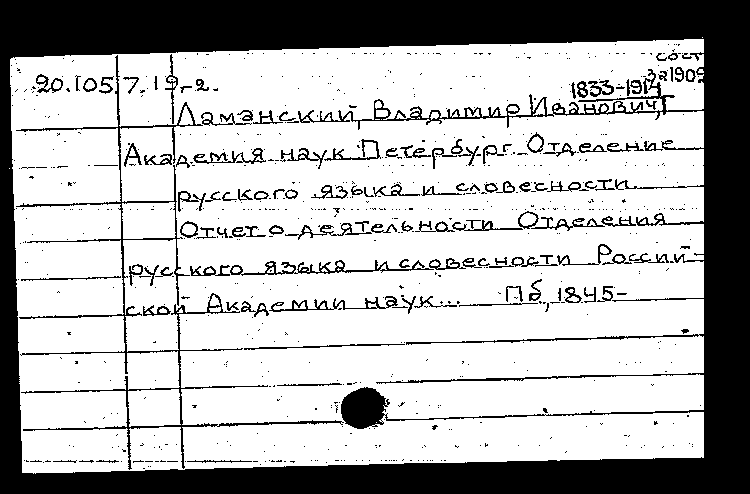 сост
за 1909
20.105.7.19-2.
1833-1914
Ламанский, Владимир Иванович,
Академия наук Петербург. Отделение
русского языка и словесности.
Отчет о деятельности Отделения
русского языка и словесности Россий-
ской Академии наук... Пб, 1845-